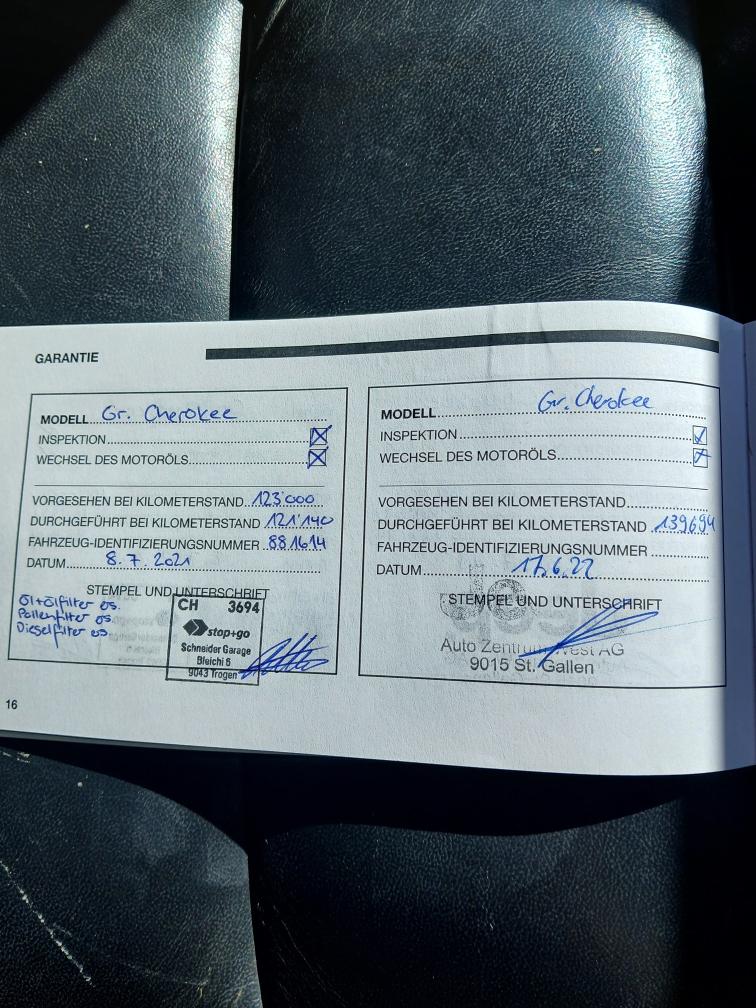 GARANTIE
MODELL Gr. Cherokee
INSPEKTION
WECHSEL DES MOTORÖLS
VORGESEHEN BEI KILOMETERSTAND 123'000
DURCHGEFÜHRT BEI KILOMETERSTAND 121'140
FAHRZEUG-IDENTIFIZIERUNGSNUMMER 881614
DATUM 8.7.2021
STEMPEL UND UNTERSCHRIFT
Öl+Ölfilter es.
Pollenfilter es.
Dieselfilter es.
CH 3694
stop+go
Schneider Garage
Bleichi 6
9043 Trogen
MODELL Gr. Cherokee
INSPEKTION
WECHSEL DES MOTORÖLS
VORGESEHEN BEI KILOMETERSTAND
DURCHGEFÜHRT BEI KILOMETERSTAND 139694
FAHRZEUG-IDENTIFIZIERUNGSNUMMER
DATUM 17.6.22
STEMPEL UND UNTERSCHRIFT
Auto Zentrum West AG
9015 St. Gallen
16